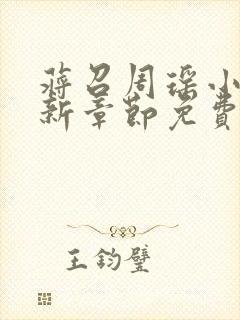 蒋召周瑶小
新章节免费
王钧璧